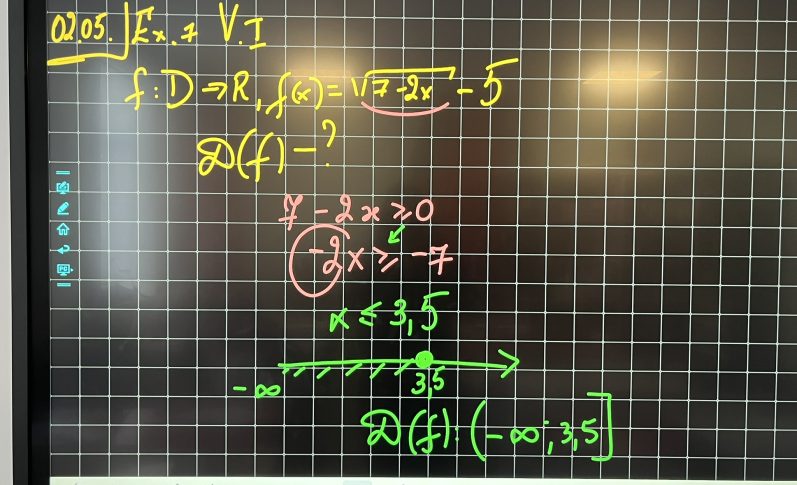 02.05. Ex. 7 V.I
f : D → R, f(x) = √7-2x - 5
D(f) - ?
7 - 2x ≥ 0
-2x ≥ -7
x ≤ 3,5
-∞ 3,5
D(f): (-∞; 3,5]